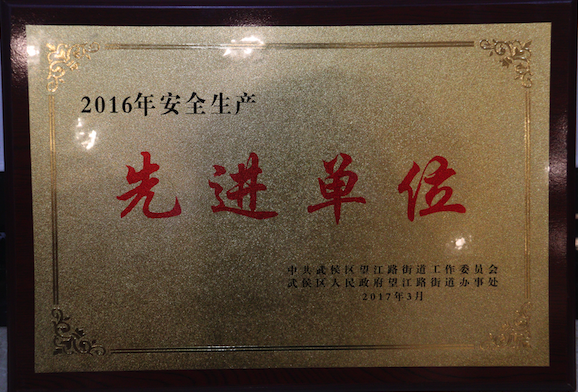 2016年安全生产
先进单位
中共武侯区望江路街道工作委员会
武侯区人民政府望江路街道办事处
2017年3月